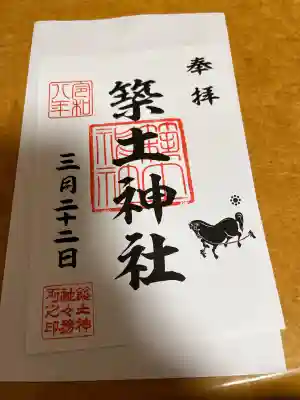 奉拝
築土神社
令和
八年
三月二十二日
築土神
社々務
所之印